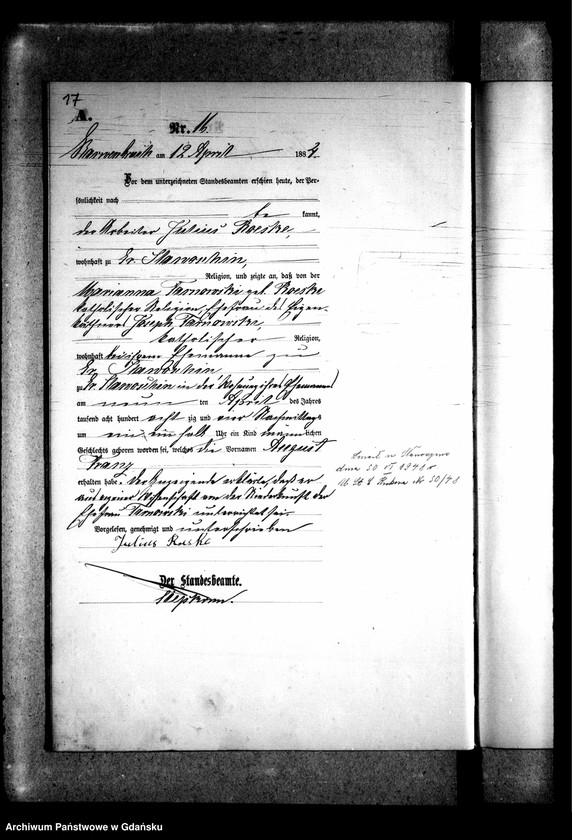 17
A.
Nr. 16
am 12 April 1884.
Vor dem unterzeichneten Standesbeamten erschien heute, der Per-
sönlichkeit nach
be kannt,
der Arbeiter Julius Roeske,
wohnhaft zu Gr.
Religion, und zeigte an, daß von der
Marianna Tarnowski geb. Roeske
katholischer Religion, Ehefrau des Eigen-
käthners Joseph Tarnowski,
katholischer Religion,
wohnhaft bei ihrem Ehemanne zu
Gr.
zu Gr. in der Wohnung ihres Ehemannes
am neun ten April des Jahres
tausend acht hundert acht zig und vier Nachmittags
um ein Uhr ein Kind männ lichen
Geschlechts geboren worden sei, welches die Vornamen August
Franz
erhalten habe. Der Anzeigende erklärte, daß er
aus eigener Wissenschaft von der Niederkunft der
Ehefrau Tarnowski unterrichtet sei.
Vorgelesen, genehmigt und unterschrieben
Julius Roeske
Der Standesbeamte.
dnia 30 VI 1940 r
Nr 50/40
Archiwum Państwowe w Gdańsku